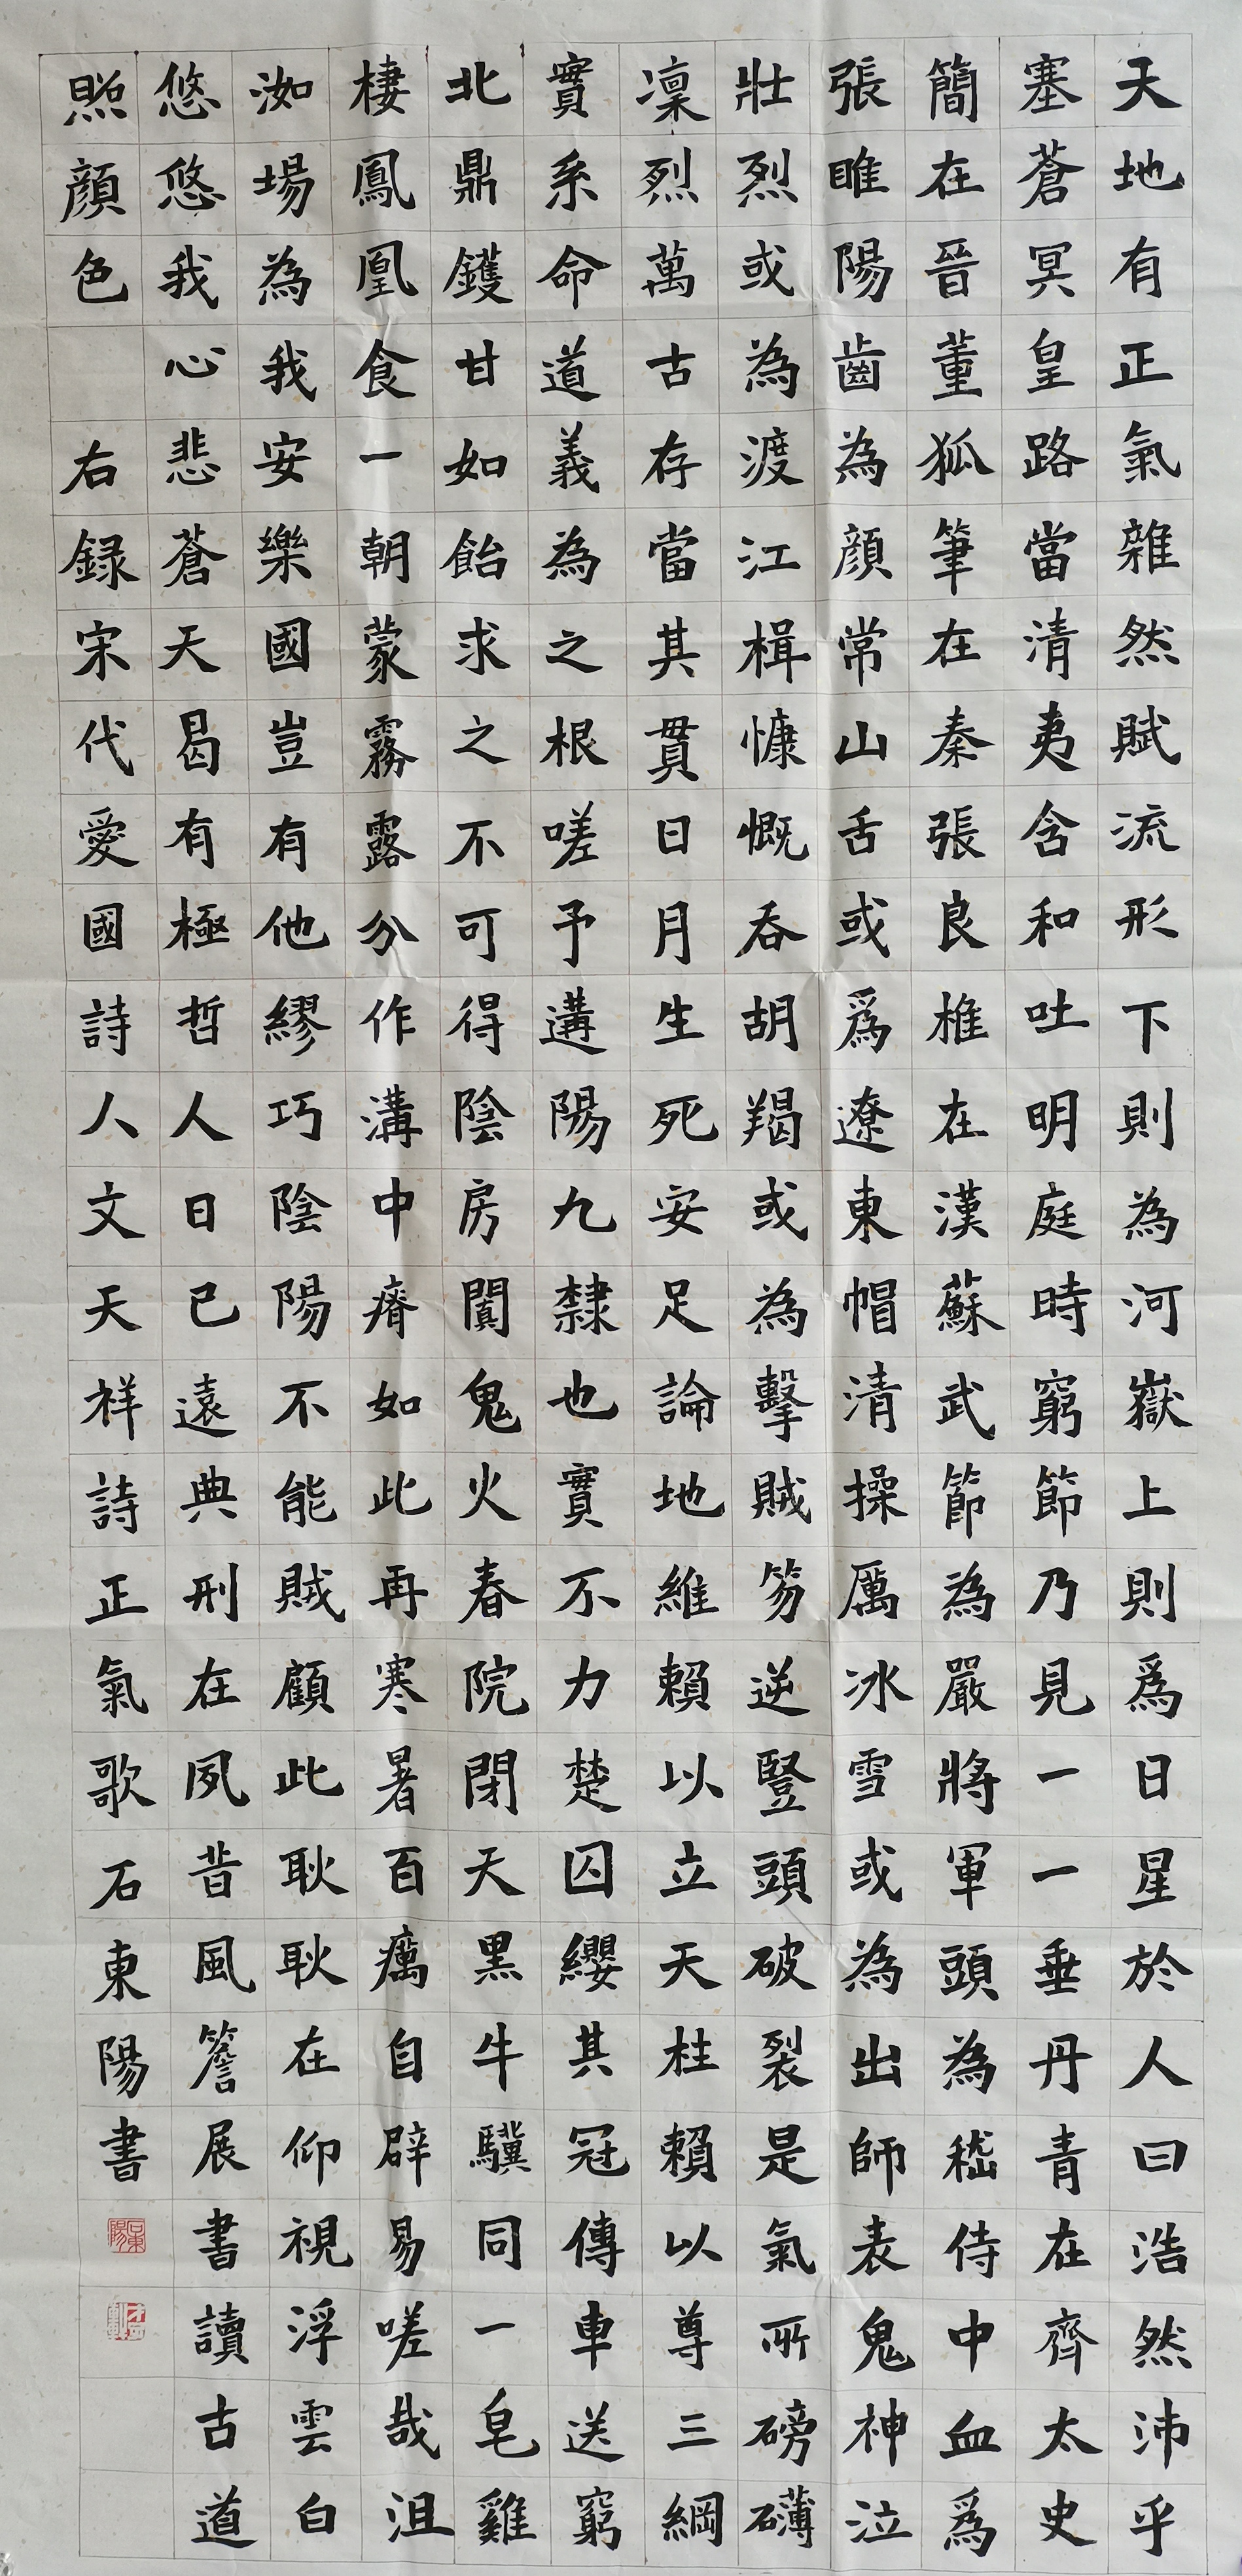 天地有正氣雜然賦流形下則為河嶽上則爲日星於人曰浩然沛乎
塞蒼冥皇路當清夷含和吐明庭時窮節乃見一一垂丹青在齊太史
簡在晉董狐筆在秦張良椎在漢蘇武節為嚴將軍頭為嵇侍中血爲
張睢陽齒為顔常山舌或爲遼東帽清操厲冰雪或為出師表鬼神泣
壯烈或為渡江楫慷慨吞胡羯或為擊賊笏逆豎頭破裂是氣所磅礴
凜烈萬古存當其貫日月生死安足論地維賴以立天柱賴以尊三綱
實系命道義為之根嗟予遘陽九隸也實不力楚囚纓其冠傳車送窮
北鼎鑊甘如飴求之不可得陰房闐鬼火春院閉天黑牛驥同一皂雞
棲鳳凰食一朝蒙霧露分作溝中瘠如此再寒暑百癘自辟易嗟哉沮
洳場為我安樂國豈有他繆巧陰陽不能賊顧此耿耿在仰視浮雲白
悠悠我心悲蒼天曷有極哲人日已遠典刑在夙昔風簷展書讀古道
照顔色 右録宋代愛國詩人文天祥詩正氣歌石東陽書